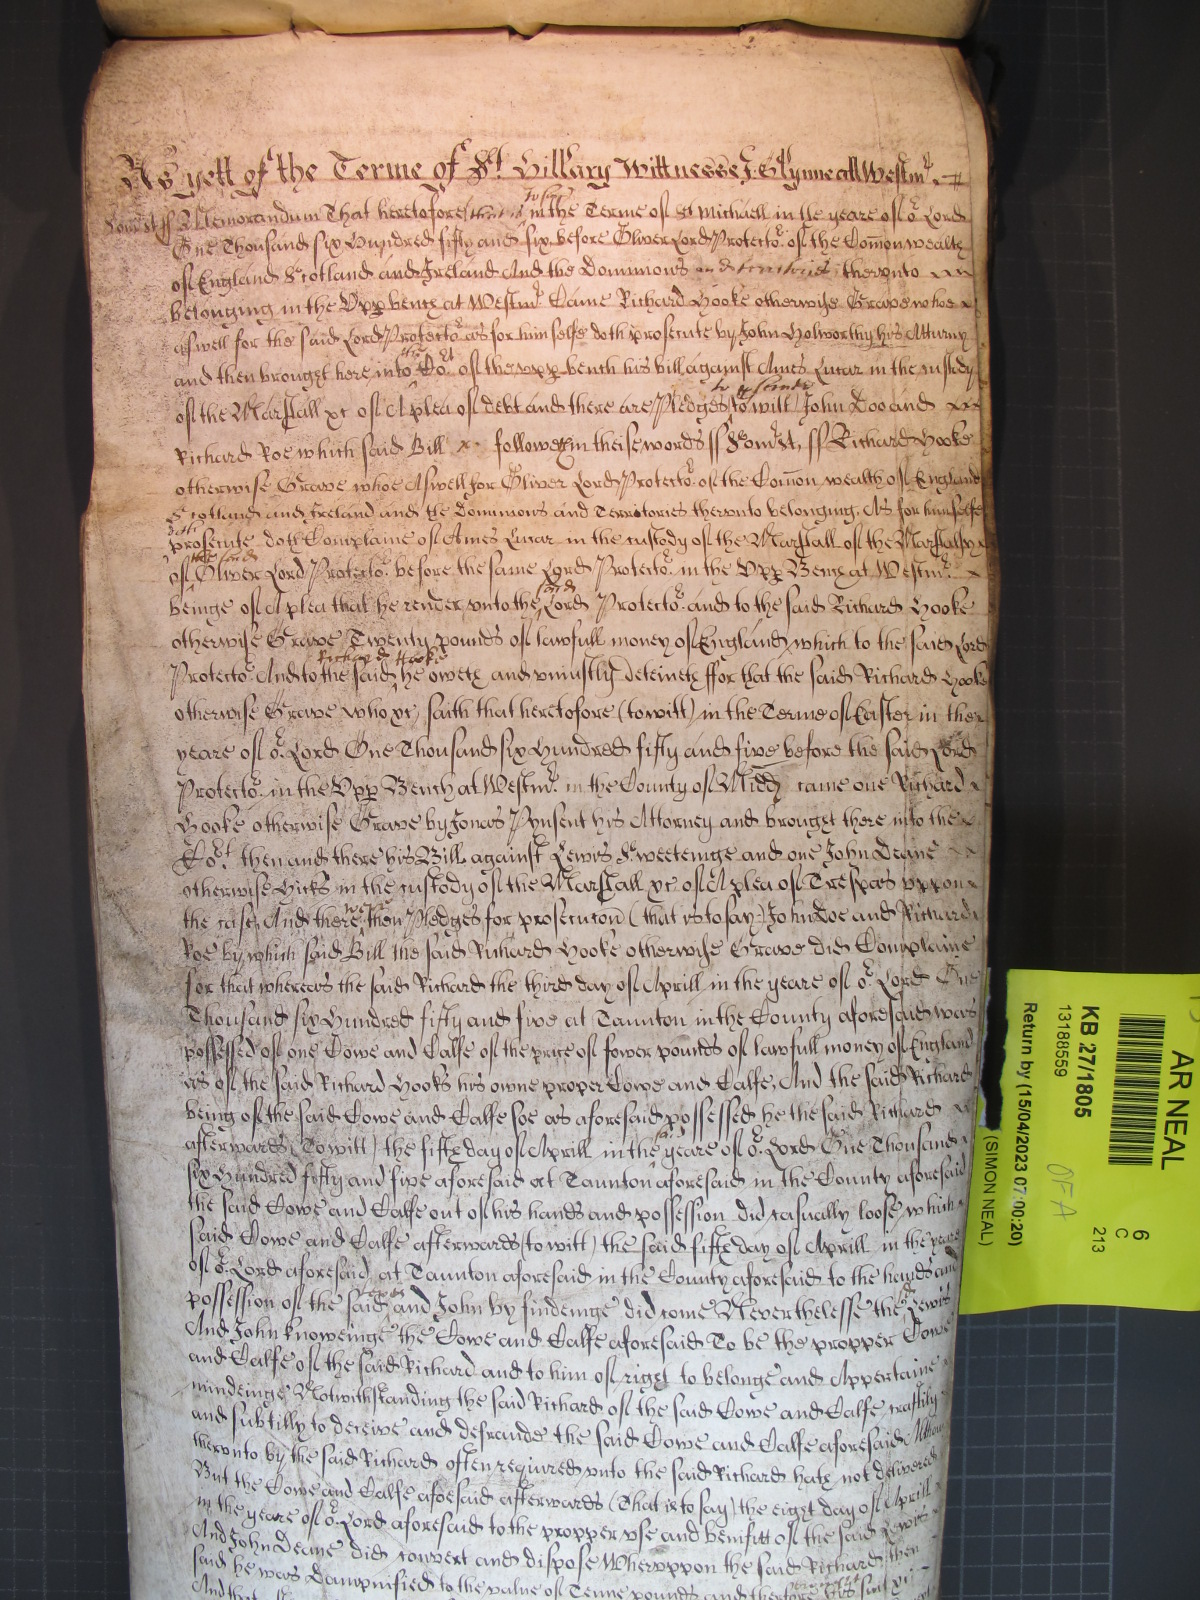 As yett of the Terme of St. Hillary Wittnesse J: Glynne att Westmr.
Somst ss Memorandum That heretofore that is to say in the Terme of St Michaell in the yeare of or. Lord
One Thousand six Hundred fifty and six before Oliver Lord Protector. of the Com̄on wealth
of England Scotland and Ireland And the Dominions and territories therevnto
belonging in the Vpp bench at Westmr. Came Richard Hooke otherwise Grave whoe
aswell for the said Lord Protector. as for himselfe doth prosecute by John Holworthy his Atturny
and then brought here into the Cort of the vpp bench his bill against Ames Lucar in the custody
of the Marshall &c of A plea of debt and there are Pledges to prosecute to witt John Doo and
Richard Roe which said Bill followeth in theise words ss Somst. ss Richard Hooke
otherwise Grave whoe Aswell for Oliver Lord Protector. of the Com̄on wealth of England
Scotland and Ireland and the dominions and Territories therevnto belonging. As for himselfe
doth prosecute doth Complaine of Ames Lucar in the custody of the Marshall of the Marshalsey
of the said Oliver Lord Protector. before the same Lord Protector. in the Vpp Bench at Westmr.
beinge of A plea that he render vnto the said Lord Protector. and to the said Richard Hooke
otherwise Grave Twenty pounds of lawfull money of England which to the said Lord
Protector. And to the said Richard Hooke he oweth and vniustly deteineth ffor that the said Richard Hooke
otherwise Grave who &c saith that heretofore (to witt) in the Terme of Easter in the
yeare of or. Lord One Thousand six Hundred fifty and five before the said Lord
Protector. in the Vpp Bench at Westmr. in the County of Midd came one Richard
Hooke otherwise Grave by Jonas Pynsent his Attorney and brought there into the
Cort. then and there his Bill against Lewis Sweeteinge and one John Deane
otherwise Hicks in the custody of the Marshall &c of A plea of Trespas vppon
the case And there were then Pledges for prosecucon (that is to say) John Doe and Richard
Roe by which said Bill the said Richard Hooke otherwise Grave did Complaine
for that whereas the said Richard the third day of Aprill in the yeare of or. Lord One
Thousand six Hundred fifty and five at Taunton in the County aforesaid was
possessed of one Cowe and Calfe of the price of fower pounds of lawfull money of England
as of the said Richard Hooks his owne proper Cowe and Calfe. And the said Richard
being of the said Cowe and Calfe soe as aforesaid possessed he the said Richard
afterwards (To witt) the fifth day of Aprill in the said yeare of or. Lord One Thousand
six Hundred fifty and five aforesaid at Taunton aforesaid in the County aforesaid
the said Cowe and Calfe out of his hands and possession did casually loose which
said Cowe and Calfe afterwards (to witt) the said fifth day of Aprill in the yeare
of or. Lord aforesaid at Taunton aforesaid in the County aforesaid to the hands and
possession of the said Lewis and John by findeinge did come Neverthelesse the sd Lewis
And John knoweinge the Cowe and Calfe aforesaid To be the propper Cowe
and Calfe of the said Richard and to him of right to belonge and Appertaine
mindeinge Notwithstanding the said Richard of the said Cowe and Calfe craftily
and subtilly to deceive and defraude the said Cowe and Calfe aforesaid
therevnto by the said Richard often required vnto the said Richard hath not delivered
But the Cowe and Calfe afoesaid afterwards (That is to say) the eight day of Aprill
in the yeare of or. Lord aforesaid to the propper vse and benifitt of the said Lewis
And John Deane did convert and dispose Wherevppon the said Richard then
said he was dampnified to the value of Tenne pounds and therefore
AR NEAL
KB 27/1805
13188559
Return by (15/04/2023 07:00:20)
(SIMON NEAL)
6
C
213